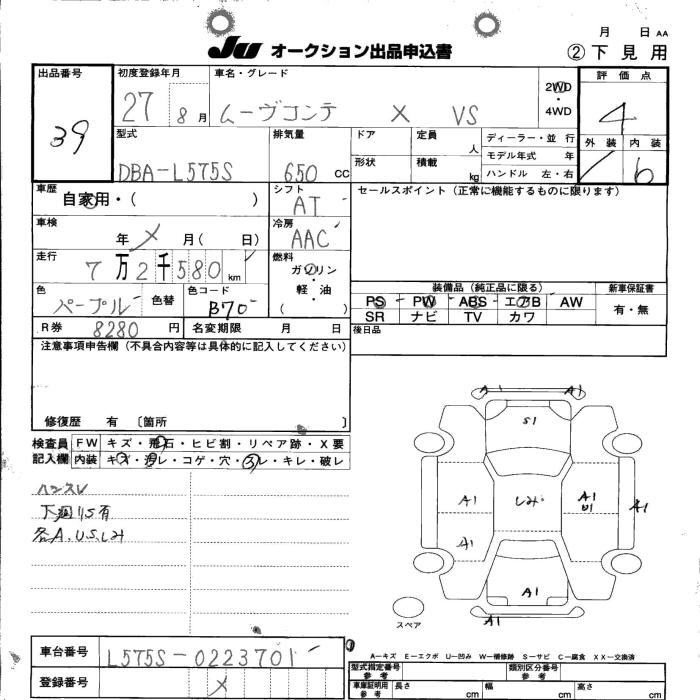 月 日 AA
JU オークション出品申込書 ②下見用
出品番号 初度登録年月 車名・グレード 2WD ・ 4WD 評価点
39 27 8月 ムーヴコンテ X VS 4
型式 排気量 ドア 定員 人 ディーラー・並行 外装 内装
DBA-L575S 650 CC 形状 積載 kg モデル年式 年 6
ハンドル 左・右
車歴 自家用・( ) シフト AT セールスポイント(正常に機能するものに限ります)
車検 年 メ 月( 日) 冷房 AAC
走行 7万2千580km 燃料 ガソリン・軽・油
色 パープル 色替 色コード B70 装備品(純正品に限る) 新車保証書
PS PW ABS エアB AW 有・無
SR ナビ TV カワ
R券 8280円 名変期限 月 日 後日品
注意事項申告欄(不具合内容等は具体的に記入してください)
修復歴 有 〔箇所 〕
検査員 FW キズ・飛石・ヒビ割・リペア跡・X要
記入欄 内装 キズ・汚レ・コゲ・穴・スレ・キレ・破レ
ヘンスレ
下廻りS有
各A.U.Sしみ
A1 A1
S1
A1 しみ A1 U1 A1
A1
A1
A1
スペア
A-キズ E-エクボ U-凹み W-補修跡 S-サビ C-腐食 XX-交換済
車台番号 L575S-0223701
登録番号 メ
型式指定番号 参考 類別区分番号 参考
車庫証明用 参考 長さ cm 幅 cm 高さ cm